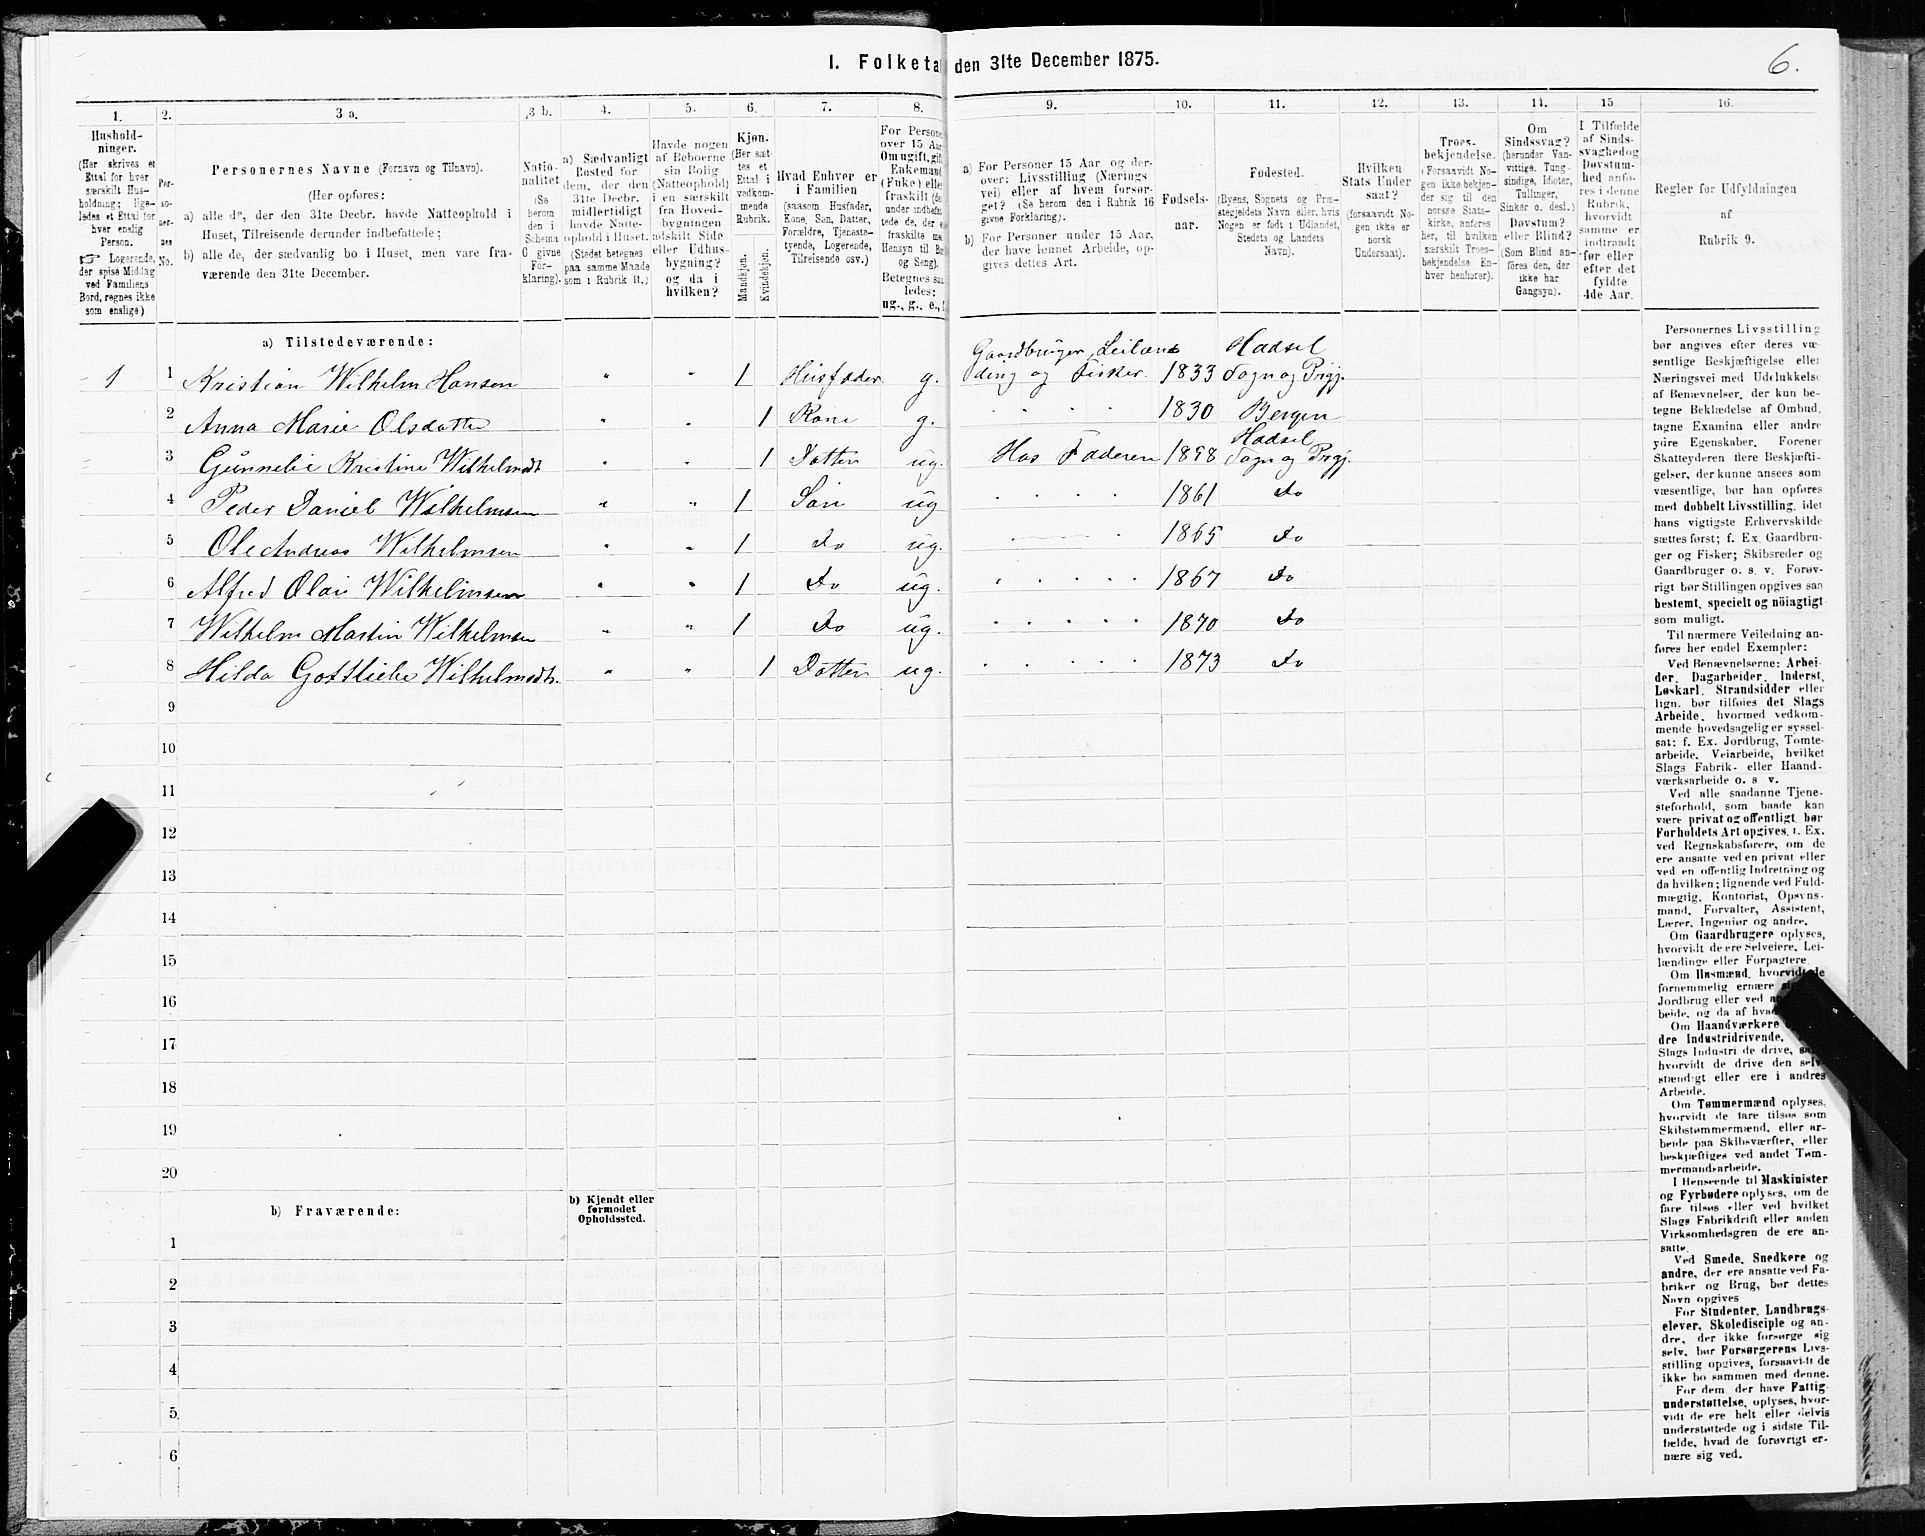 I. Folketa den 31te December 1875.
6.
1.
2.
3 a.
3 b.
4.
5.
6.
7.
8.
9.
10.
11.
12.
13.
14.
15
16.
Hushold-
ninger.
(Her skrives et
Ettal for hver
særskilt Hus-
holdning; lige-
ledes et Ettal for
hver enslig
Person.
☞ Logerende,
der spise Middag
ved Familiens
Bord, regnes ikke
som enslige)
Per-
so-
ner-
nes
No.
Personernes Navne (Fornavn og Tilnavn).
(Her opføres:
a) alle de, der den 31te Decbr. havde Natteophold i
Huset, Tilreisende derunder indbefattede;
b) alle de, der sædvanlig bo i Huset, men vare fra-
værende den 31te December.
Natio-
nalitet
(Se
herom
den i
Schema
O givne
For-
klaring).
a) Sædvanligt
Bosted for
dem, der den
31te Decbr.
midlertidigt
havde Natte-
ophold i Huset.
(Stedet betegnes
paa samme Maade
som i Rubrik 11.)
Havde nogen
af Beboerne
sin Bolig
(Natteophold)
i en særskilt
fra Hoved-
bygningen
adskilt Side
eller Udhus-
bygning?
og da i
hvilken?
Kjøn.
(Her sæt-
tes et
Ettal i
vedkom-
mende
Rubrik.
Mandkjøn.
Kvindekjøn.
Hvad Enhver er
i Familien
(saasom Husfader,
Kone, Søn, Datter,
Forældre, Tjeneste-
tyende, Logerende,
Tilreisende osv.)
For Persone
over 15 Aa
Om ugift, gif
Enkemand
(Fuke) elle
fraskilt (de
under indbefa
tede de, der e
fraskilte me
Hensyn til Bo
og Seng).
Betegnes saa
ledes:
ug., g., e., f
a) For Personer 15 Aar og der-
over: Livsstilling (Nærings
vei) eller af hvem forsør-
get? (Se herom den i Rubrik 16
givne Forklaring).
b) For Personer under 15 Aar,
der have lønnet Arbeide, op-
gives dettes Art.
Fødsels-
aar.
Fødested.
(Byens, Sognets og Præ-
stegjeldets Navn eller, hvis
Nogen er født i Udlandet,
Stedets og Landets
Navn).
Hvilken
Stats Under
saat?
(forsaavidt No-
gen ikke er
norsk
Undersaat).
Troes-
bekjendelse.
(Forsaavidt No-
gen ikke bekjen-
der sig til den
norske Stats-
kirke, anføres
her, til hvilken
særskilt Troes-
bekjendelse En-
hver henhører).
Om
Sindssvag?
(herunder Van-
vittige, Tung-
sindige, Idioter,
Tullinger,
Sinker o. desl.)
Døvstum?
eller Blind?
(Som Blind an-
føres den, der
ikke har
Gangsyn).
I Tilfælde
af Sinds-
svaghedog
Døvstum-
hed anfø-
res i denne
Rubrik,
hvorvidt
samme er
indtraadt
før eller
efter det
fyldte
4de Aar.
Regler for Udfyldningen
af
Rubrik 9.
a) Tilstedeværende:
1 1 Kristian Wilhelm Hansen " " 1 Husfader g. Gaardbruger, Leilæn-
ding og Fisker. 1833 Hadsel
Sogn og Prgj.
2 Anna Marie Olsdatter " " 1 Kone g. " " " " 1830 Bergen
3 Gunnelie Kristine Wilhelmsdt " " 1 Datter ug. Hos Faderen 1858 Hadsel
Sogn og Prgj.
4 Peder Daniel Wilhelmsen " " 1 Søn ug " " " " 1861 Do
5 Ole Andreas Wilhelmsen " " 1 Do ug. 1865 Do
6 Alfred Olai Wilhelmsen " " 1 Do ug. " " " " 1867 Do
7 Wilhelm Martin Wilhelmsen " " 1 Do ug. " " " " 1870 Do
8 Hilda Gottliebe Wilhelmsdtr. " " 1 Datter ug. " " " " 1873 Do
9
10
11
12
13
14
15
16
17
18
19
20
b) Fraværende:
b) Kjendt eller
formodet
Opholdssted.
1
2
3
4
5
6
Personernes Livsstilling
bør angives efter deres væ-
sentlige Beskjæftigelse eller
Næringsvei med Udelukkelse
af Benævnelser, der kun be-
tegne Beklædelse af Ombud,
tagne Examina eller andre
ydre Egenskaber. Forener
Skatteyderen flere Beskjæfti-
gelser, der kunne ansees som
væsentlige, bør han opføres
med dobbelt Livsstilling, idet
hans vigtigste Erhvervskilde
sættes først; f. Ex. Gaardbru-
ger og Fisker; Skibsreder og
Gaardbruger o. s. v. Forøv-
rigt bør Stillingen opgives saa
bestemt, specielt og nöiagtigt
som muligt.
Til nærmere Veiledning an-
føres her endel Exempler:
Ved Benævnelserne: Arbei-
der, Dagarbeider, Inderst,
Løskarl, Strandsidder eller
lign. bør tilføies det Slags
Arbeide, hvormed vedkom-
mende hovedsagelig er syssel-
sat; f. Ex. Jordbrug, Tomte-
arbeide, Veiarbeide, hvilket
Slags Fabrik- eller Haand-
værksarbeide o. s v.
Ved alle saadanne Tjene-
steforhold, som baade kan
være privat og offentligt, bør
Forholdets Art opgives, t. Ex.
ved Regnskabsførere, om de
ere ansatte ved en privat eller
ved en offentlig Indretning og
da hvilken; lignende ved Fuld-
mægtig, Kontorist, Opsyns-
mand, Forvalter, Assistent,
Lærer, Ingeniør og andre.
Om Gaardbrugere oplyses,
hvorvidt de ere Selveiere, Lei-
lændinge eller Forpagtere.
Om Husmænd, hvorvidt de
fornemmelig ernære
Jordbrug eller ved
beide, og da af
Om Haandværkere
dre Industridrivende,
Slags Industri de drive,
hvorvidt de drive den selv-
stændigt eller ere i andres
Arbeide.
Om Tømmermænd oplyses,
hvorvidt de fare tilsøs som
Skibstømmermænd, eller ar-
beide paa Skibsværfter, eller
beskjæftiges ved andet Tøm-
mermandsarbeide.
I Henseende til Maskinister
og Fyrbødere oplyses, om de
fare tilsøs eller ved hvilket
Slags Fabrikdrift eller anden
Virksomhedsgren de ere an-
satte.
Ved Smede, Snedkere og
andre, der ere ansatte ved Fa-
briker og Brug, bør dettes
Navn opgives
For Studenter, Landbrugs-
elever, Skoledisciple og an-
dre, der ikke forsørge sig
selv, bør Forsørgerens Livs-
stilling opgives, forsaavidt de
ikke bo sammen med denne.
For dem, der have Fattig-
understøttelse, oplyses, hvor-
vidt de ere helt eller delvis
understøttede og i sidste Til-
fælde, hvad de forøvrigt er-
nære sig ved.